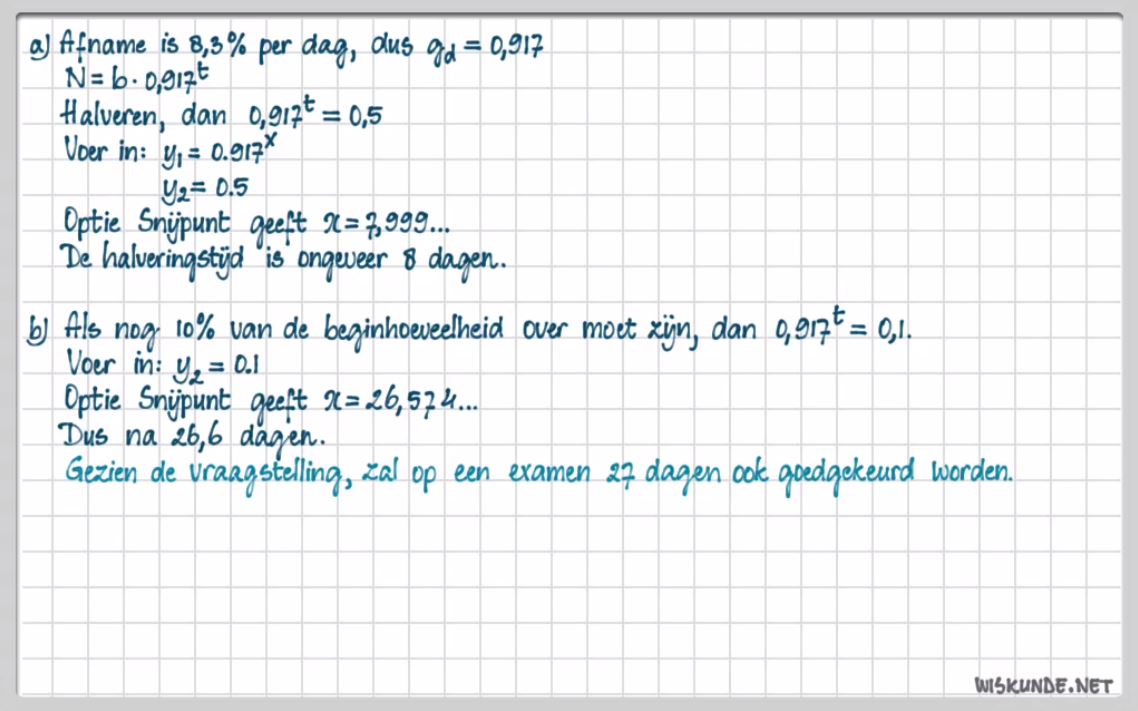 a) Afname is 8,3% per dag, dus g_d = 0,917
N = b · 0,917^t
Halveren, dan 0,917^t = 0,5
Voer in: y₁ = 0.917^x
y₂ = 0.5
Optie Snijpunt geeft x = 7,999...
De halveringstijd is ongeveer 8 dagen.
b) Als nog 10% van de beginhoeveelheid over moet zijn, dan 0,917^t = 0,1.
Voer in: y₂ = 0.1
Optie Snijpunt geeft x = 26,574...
Dus na 26,6 dagen.
Gezien de vraagstelling, zal op een examen 27 dagen ook goedgekeurd worden.
WISKUNDE.NET